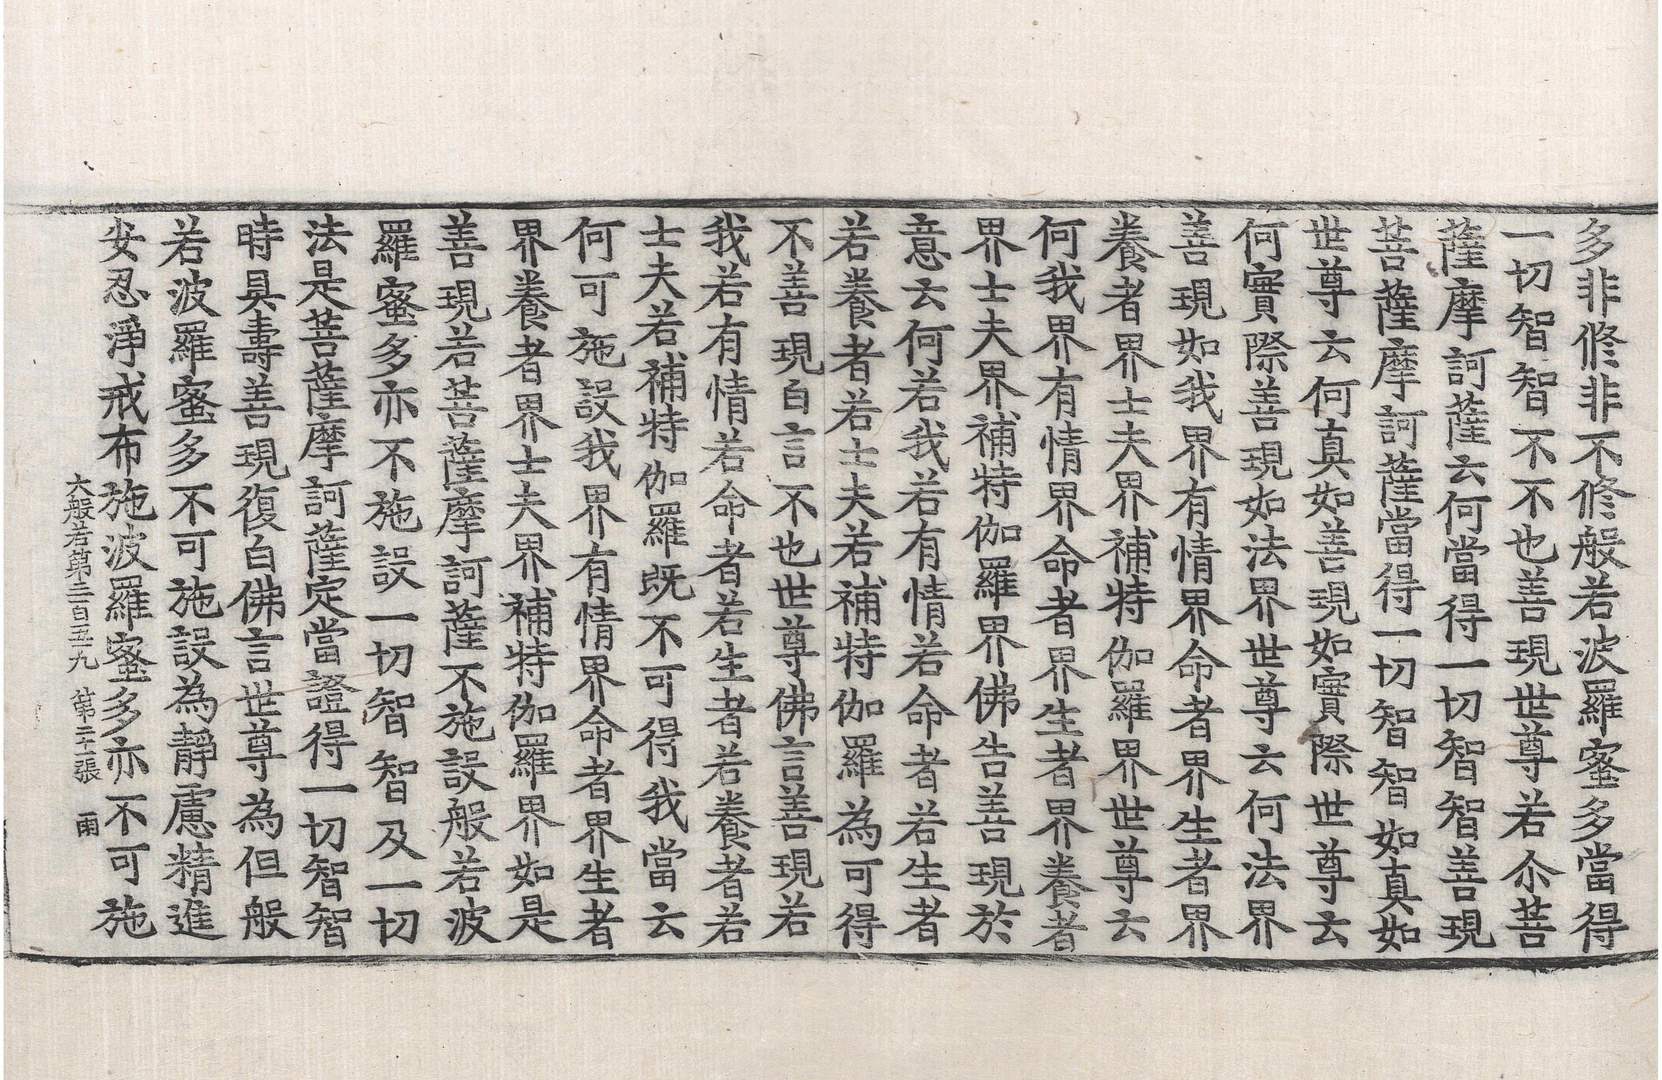 多非修非不修般若波羅蜜多當得
一切智智不不也善現世尊若尒菩
薩摩訶薩云何當得一切智智善現
菩薩摩訶薩當得一切智智如真如
世尊云何真如善現如實際世尊云
何實際善現如法界世尊云何法界
善現如我界有情界命者界生者界
養者界士夫界補特伽羅界世尊云
何我界有情界命者界生者界養者
界士夫界補特伽羅界佛告善現於
意云何若我若有情若命者若生者
若養者若士夫若補特伽羅為可得
不善現白言不也世尊佛言善現若
我若有情若命者若生者若養者若
士夫若補特伽羅既不可得我當云
何可施設我界有情界命者界生者
界養者界士夫界補特伽羅界如是
善現若菩薩摩訶薩不施設般若波
羅蜜多亦不施設一切智智及一切
法是菩薩摩訶薩定當證得一切智智
時具壽善現復白佛言世尊為但般
若波羅蜜多不可施設為靜慮精進
安忍淨戒布施波羅蜜多亦不可施
大般若第三百五九 第二十張 雨